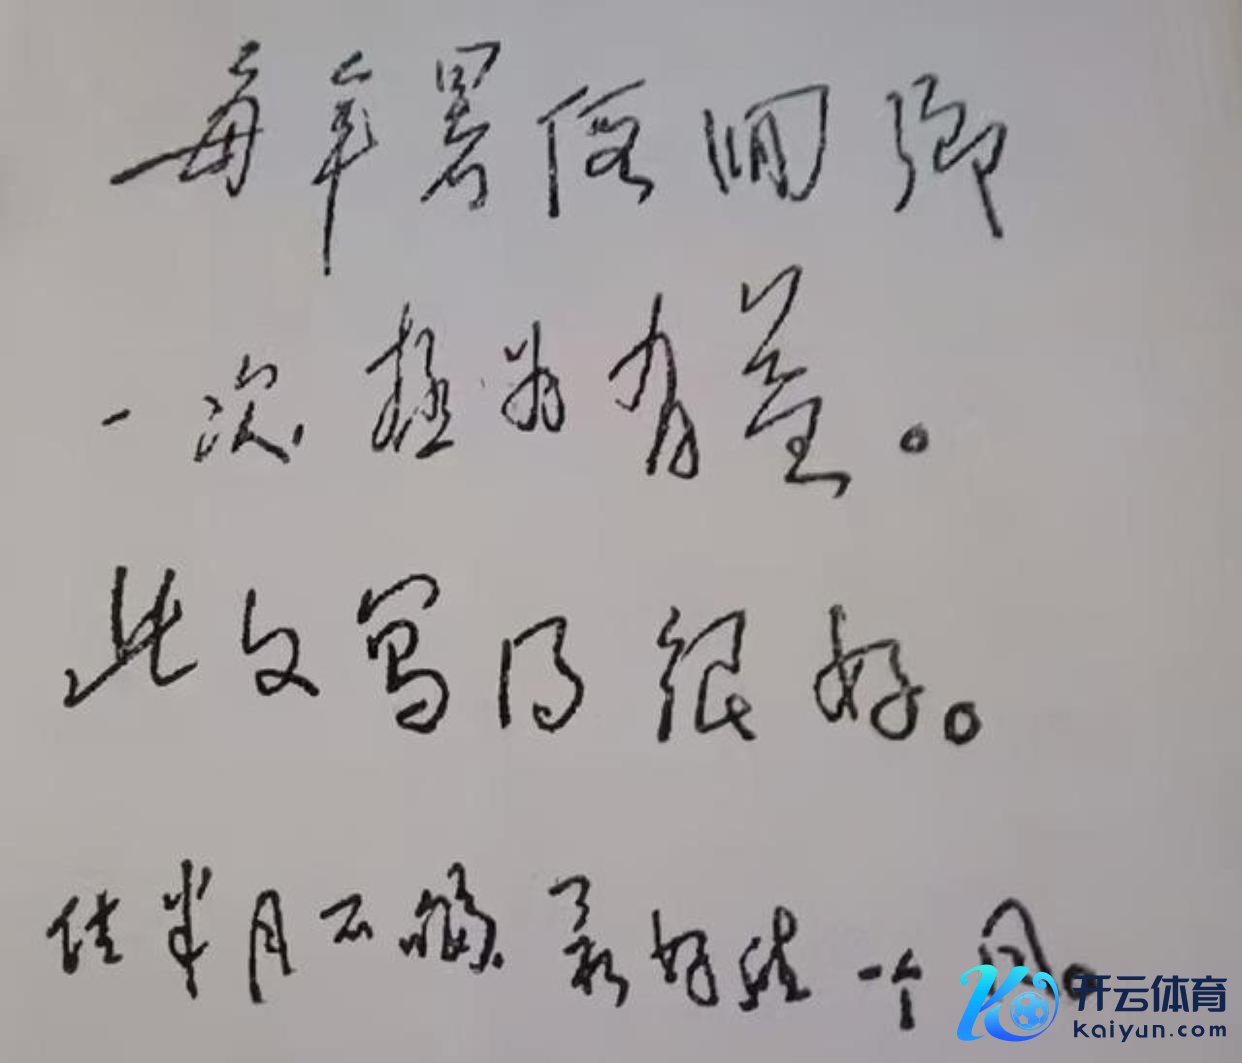 每年暑假回乡
一次,极为有益。
此文写得很好。
住半月不够,最好能住一个月。
开云体育
kaiyun.com